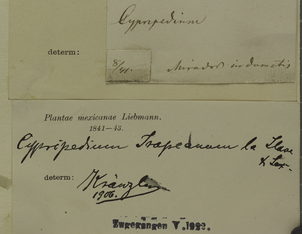 Cypripedium
determ:
8/41. Mirador in dumetis
Plantae mexicanae Liebmann.
1841—43.
Cypripedium Irapeanum La Llave
& Lex.
determ: Kränzlin
1906.
Zugegangen V. 1922.